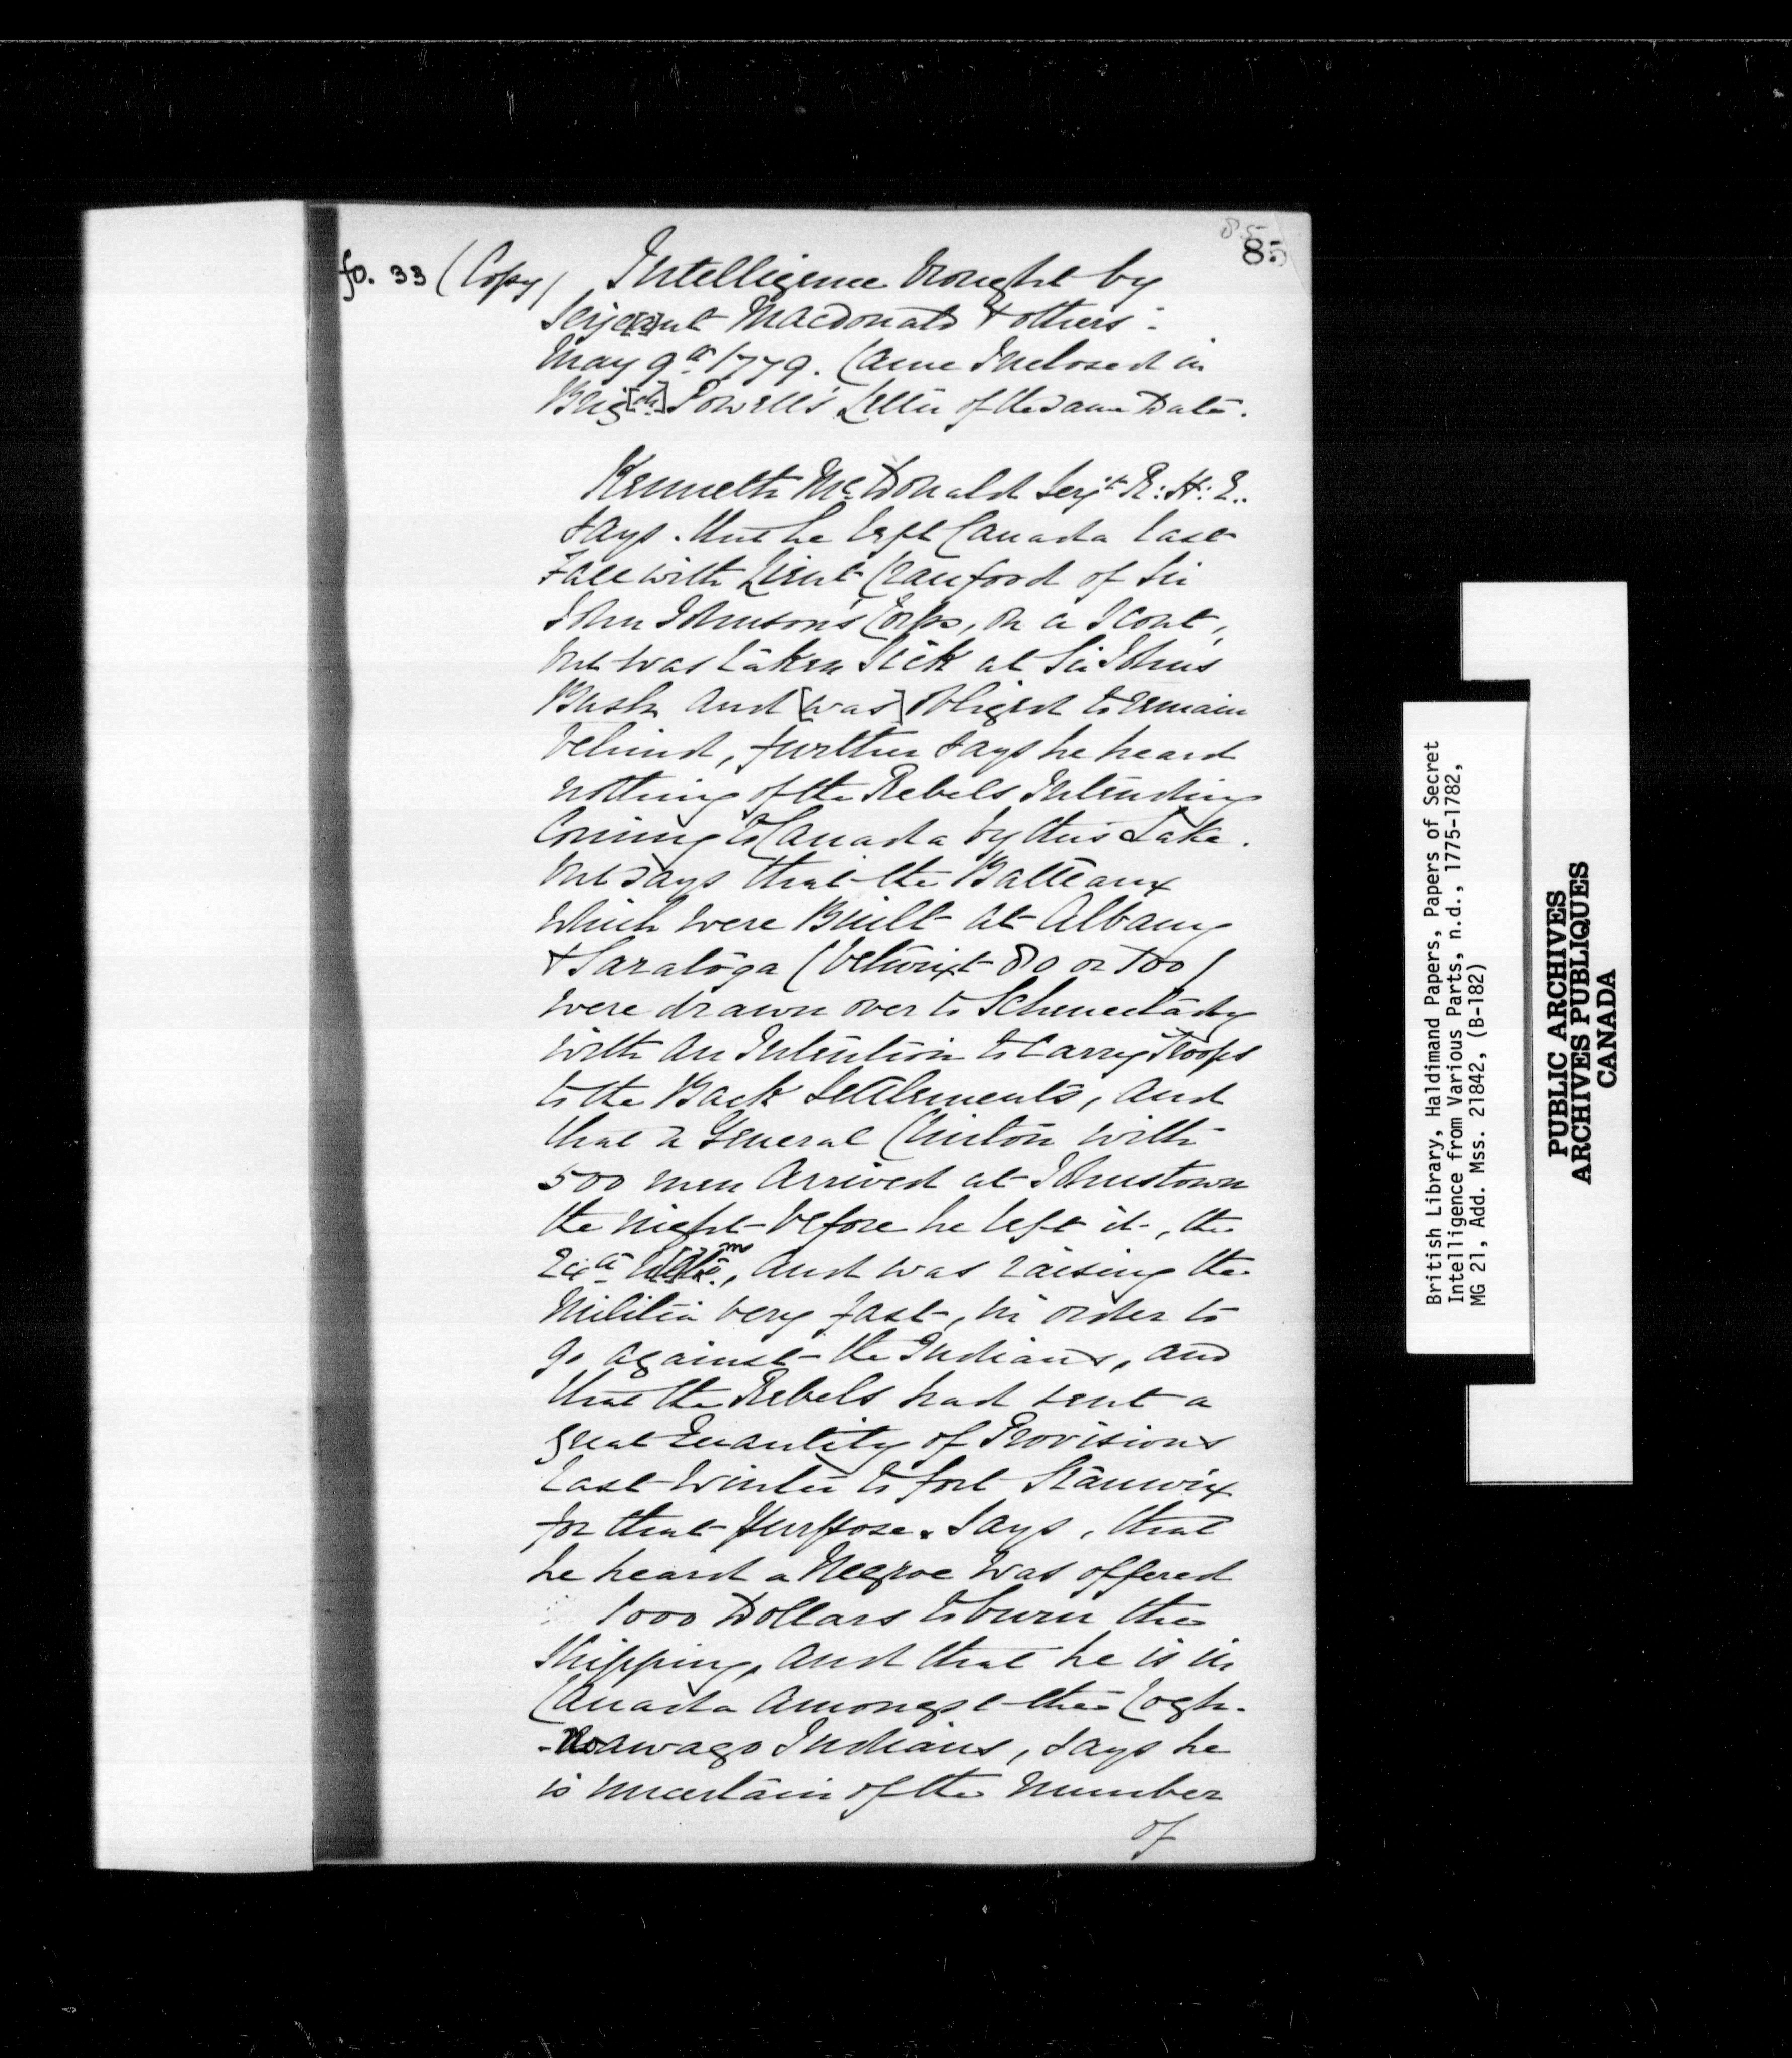 85
85
fo. 33 (Copy) Intelligence brought by
Serje[a]nt Macdonald & others:
May 9th 1779. Came Inclosed in
Brig[dr] Powell's Letter of the same Date.
Kenneth McDonald Serjt R: H: E..
says. that he left Canada last
Fall with Lieut Crauford of Sir
John Johnson's Corps, on a Scout,
but was taken Sick at Sir John's
Bush and [was] obliged to remain
behind, further says he heard
nothing of the Rebels Intending
Coming to Canada by this Lake.
but says that the Batteaux
which were Built at Albany
& Saratoga (betwixt 80 or 100)
were drawn over to Schenectady
with an Intention to carry Troops
to the Back Settlements, and
that a General Clinton with
500 men Arrived at Johnstown
the night before he left it, the
and was raising the
Militia very fast, in order to
go against the Indians, and
that the Rebels had sent a
great Quantity of Provisions
last Winter to fort Stanwix
for that Purpose. Says, that
he heard a Negroe was offered
1000 Dollars to burn the
Shipping, and that he is in
Canada amongst the Cogh-
-nawago Indians, says he
is uncertain of the number
of
British Library, Haldimand Papers, Papers of Secret
Intelligence from Various Parts, n.d., 1775-1782,
MG 21, Add. Mss. 21842, (B-182)
PUBLIC ARCHIVES
ARCHIVES PUBLIQUES
CANADA